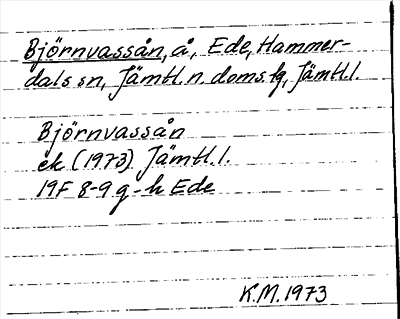 Björnvassån, å, Ede, Hammer-
dals sn, Jämtl. n. doms.fg, Jämtl.l.
Björnvassån
ek (1973) Jämtl. l.
19F 8-9 g-h Ede
K.M. 1973